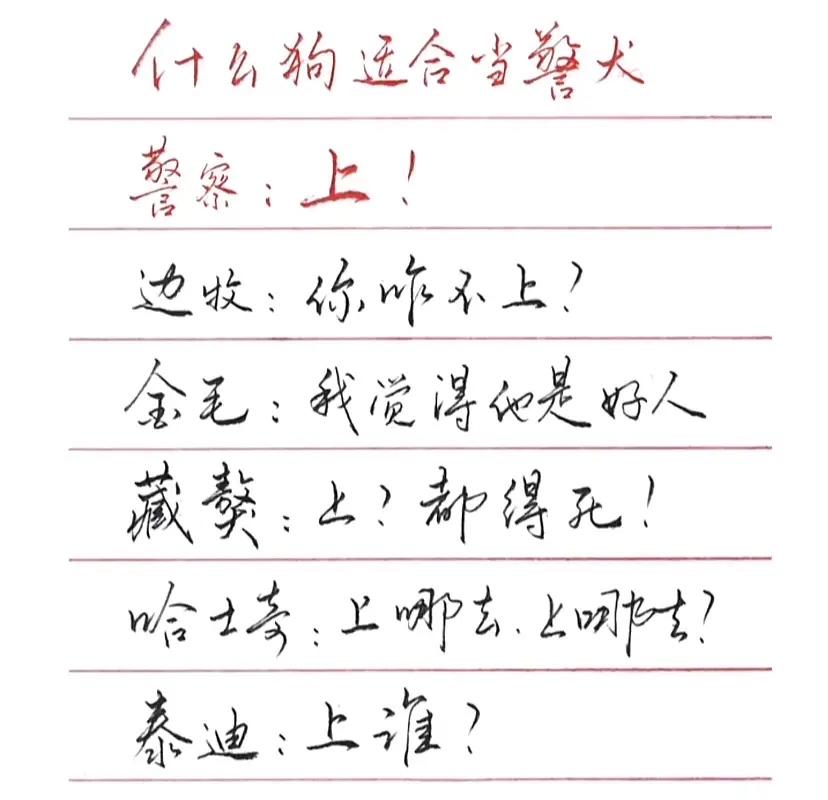 什么狗适合当警犬
警察：上！
边牧：你咋不上？
金毛：我觉得他是好人
藏獒：上？都得死！
哈士奇：上哪去、上哪去？
泰迪：上谁？